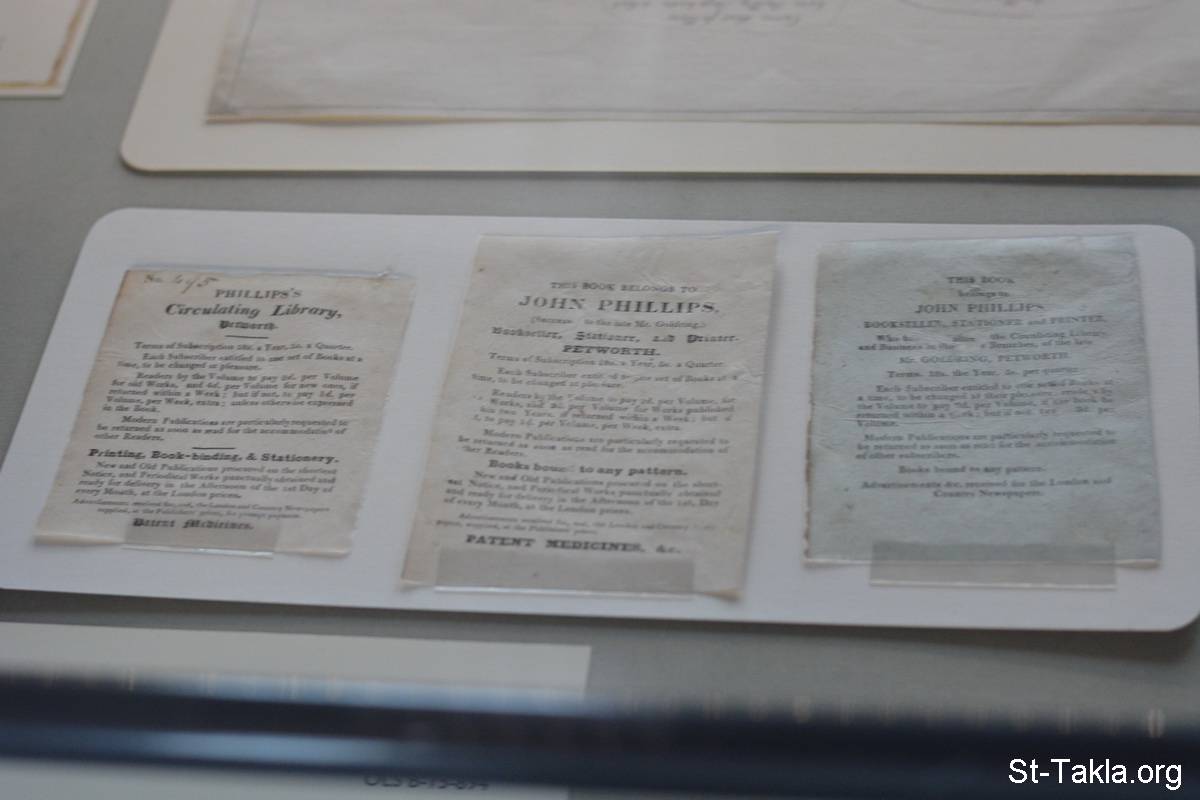 No. 4/5
PHILLIPS'S
Circulating Library,
Petworth.
Terms of Subscription 18s. a Year, 5s. a Quarter.
Each Subscriber entitled to one set of Books at a
time, to be changed at pleasure.
Readers by the Volume to pay 2d. per Volume
for old Works, and 4d. per Volume for new ones, if
returned within a Week; but if not, to pay 1d. per
Volume, per Week, extra; unless otherwise expressed
in the Book.
Modern Publications are particularly requested to
be returned as soon as read for the accommodation of
other Readers.
Printing, Book-binding, & Stationery.
New and Old Publications procured on the shortest
Notice, and Periodical Works punctually obtained and
ready for delivery in the Afternoon of the 1st Day of
every Month, at the London prices.
Advertisements received for, and, the London and Country Newspapers
supplied, at the Publishers' prices, for prompt payment.
Patent Medicines.
THIS BOOK BELONGS TO
JOHN PHILLIPS,
to the late Mr. Goldring,)
Bookseller, Stationer, and Printer.
PETWORTH.
Terms of Subscription 18s. a Year, 5s. a Quarter.
Each Subscriber entitled to one set of Books at a
time, to be changed at pleasure.
Readers by the Volume to pay 2d. per Volume, for
Works, and per Volume for Works published
his two Years, if returned within a Week; but if
to pay 1d. per Volume, per Week, extra.
Modern Publications are particularly requested to
be returned as soon as read for the accommodation of
Readers.
Books bound to any pattern.
New and Old Publications procured on the short-
Notice, and Periodical Works punctually obtained
and ready for delivery in the Afternoon of the 1st. Day
of every Month, at the London prices.
Advertisements received for, and, the London and Country
supplied, at the Publishers' prices.
PATENT MEDICINES, &c.
THIS BOOK
belongs to
JOHN PHILLIPS,
BOOKSELLER, STATIONER and PRINTER,
the Counting Library,
and Business in the Branches, of the late
Mr. GOLDRING, PETWORTH
Terms. 18s. the Year, 5s. per quarter.
Each Subscriber entitled to one set of Books at
a time, to be changed at their pleasure.
the Volume to pay 2d. per Volume, if the book be
returned within a but if not per
Volume.
Modern Publications are particularly requested to
be returned as soon as read for the accommodation
of other subscribers.
Books bound to any pattern.
Advertisements &c. received for the London and
Country Newspapers.
St-Takla.org